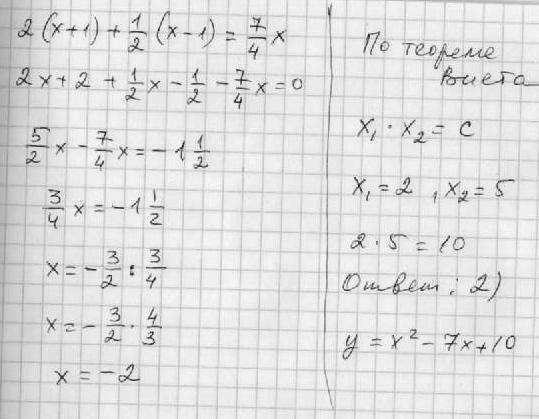 2(x+1)+1/2(x-1)=7/4x
2x+2+1/2x-1/2-7/4x=0
5/2x-7/4x=-1 1/2
3/4x=-1 1/2
x=-3/2:3/4
x=-3/2·4/3
x=-2
По теореме
Виета
x₁·x₂=c
x₁=2, x₂=5
2·5=10
Ответ: 2)
y=x²-7x+10